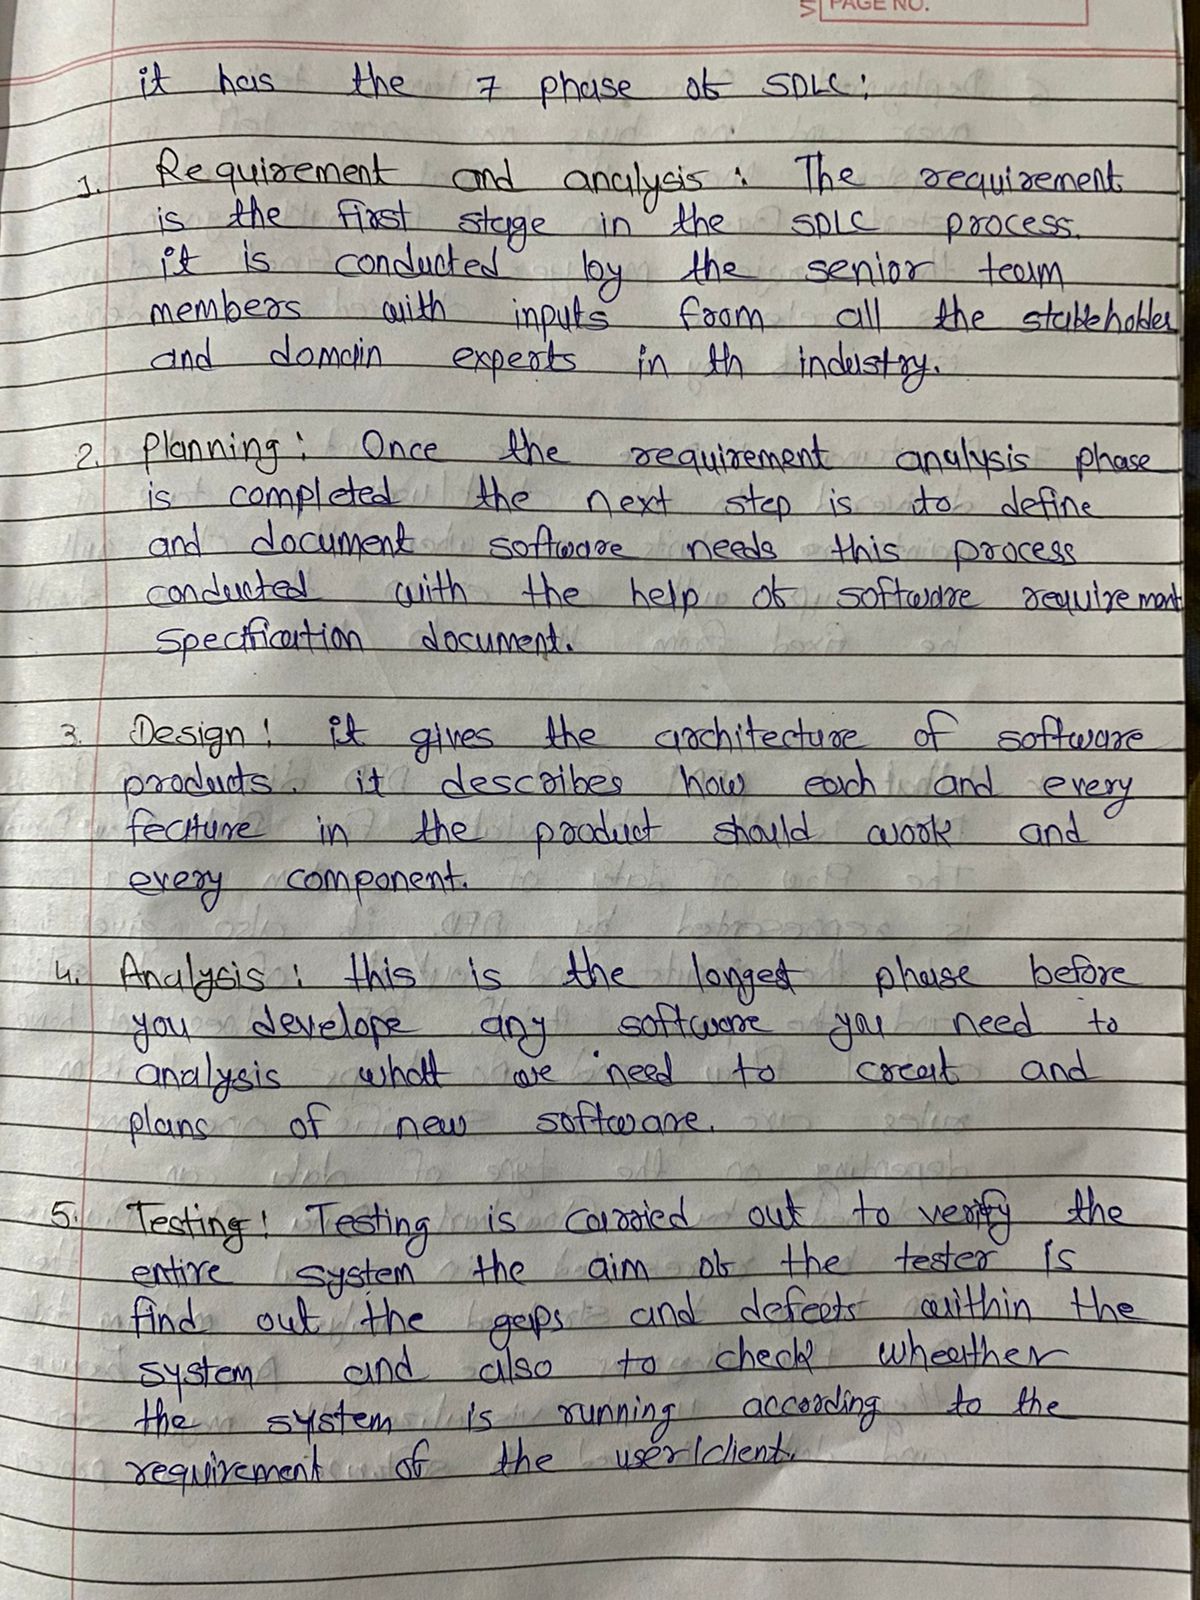 PAGE NO.
it has the 7 phase of SDLC:
1. Requirement and analysis: The requirement
is the first stage in the SDLC process.
it is conducted by the senior team
members with inputs from all the stakeholder
and domain experts in th industry.
2. Planning: Once the requirement analysis phase
is completed the next step is to define
and document software needs this process
conducted with the help of software requirement
specification document.
3. Design: it gives the architecture of software
products. it describes how each and every
feature in the product should work and
every component.
4. Analysis: this is the longest phase before
you develope any software you need to
analysis what we need to creat and
plans of new software.
5. Testing: Testing is carried out to verify the
entire system the aim of the tester is
find out the gaps and defects within the
system and also to check wheather
the system is running according to the
requirement of the user/client.